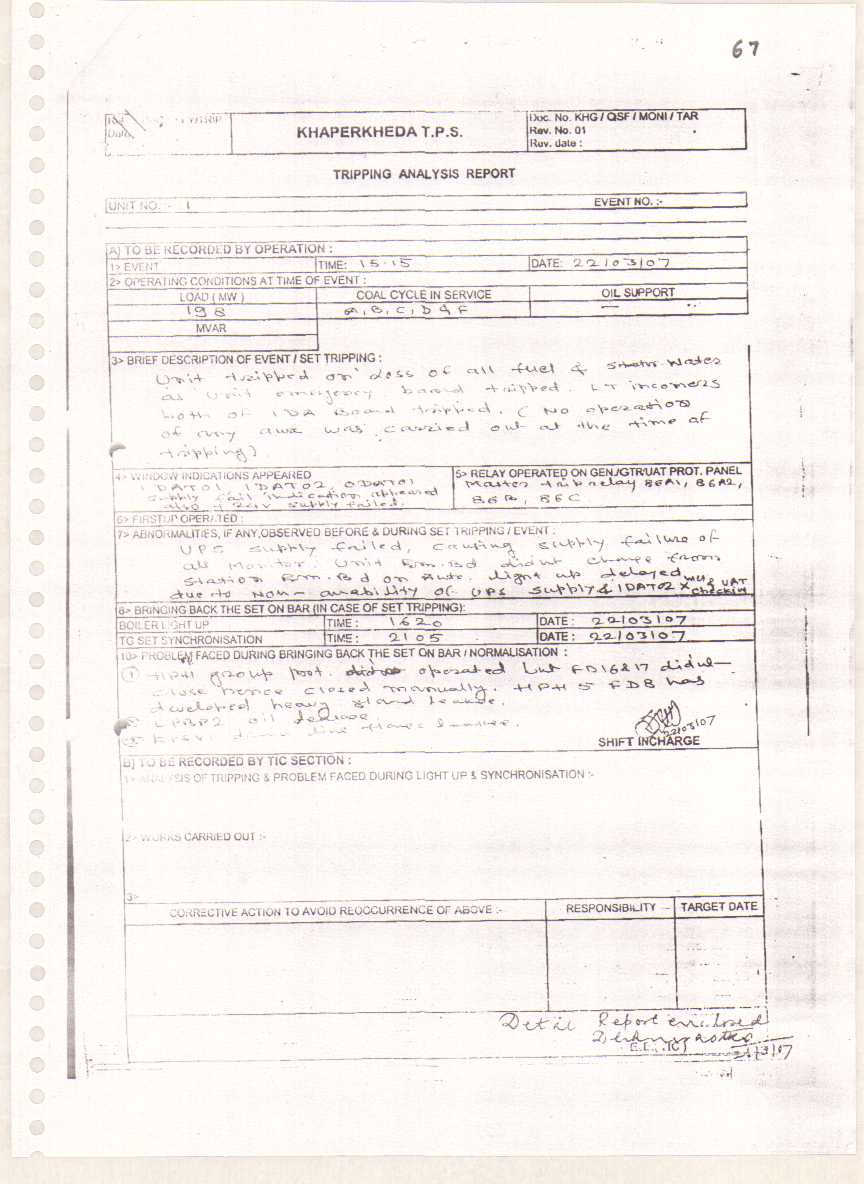 67
KHAPERKHEDA T.P.S.
Doc. No. KHG / QSF / MONI / TAR
Rev. No. 01
Rev. date :
TRIPPING ANALYSIS REPORT
UNIT NO. :- 1 EVENT NO. :-
A) TO BE RECORDED BY OPERATION :
1> EVENT TIME: 15.15 DATE: 22/03/07
2> OPERATING CONDITIONS AT TIME OF EVENT :
LOAD ( MW ) COAL CYCLE IN SERVICE OIL SUPPORT
198 A, B, C, D & F —
MVAR
3> BRIEF DESCRIPTION OF EVENT / SET TRIPPING :
Unit tripped on loss of all fuel & stator water
as Unit emergency board tripped. LT incomers
both of 1DA Board tripped. ( No operation
of any aux was carried out at the time of
tripping)
4> WINDOW INDICATIONS APPEARED
1DAT01 1DAT02, 0DAT01
supply fail indication appeared
also + 24V supply failed.
5> RELAY OPERATED ON GEN/GTR/UAT PROT. PANEL
Master trip relay 86A1, 86A2,
86B, 86C
6> FIRSTUP OPERATED :
7> ABNORMALITIES, IF ANY,OBSERVED BEFORE & DURING SET TRIPPING / EVENT :
UPS supply failed, causing supply failure of
all Monitor. Unit Em.Bd didnt change from
Station Em.Bd on Auto. light up delayed
due to Non-avability of UPS supply & 1DAT02 & UAT
checking
8> BRINGING BACK THE SET ON BAR (IN CASE OF SET TRIPPING):
BOILER LIGHT UP TIME : 1620 DATE : 22/03/07
TG SET SYNCHRONISATION TIME : 2105 DATE : 22/03/07
10> PROBLEM FACED DURING BRINGING BACK THE SET ON BAR / NORMALISATION :
1 HPH group prot. operated but FD16&17 didnt
close hence closed manually. HPH 5 FDB has
developed heavy gland leakage.
2 LPBP2 oil leakage.
3 line flange leakage.
22/03/07
SHIFT INCHARGE
B] TO BE RECORDED BY TIC SECTION :
1> ANALYSIS OF TRIPPING & PROBLEM FACED DURING LIGHT UP & SYNCHRONISATION :-
2> WORKS CARRIED OUT :-
3>
CORRECTIVE ACTION TO AVOID REOCCURRENCE OF ABOVE :- RESPONSIBILITY TARGET DATE
Detail Report enclosed